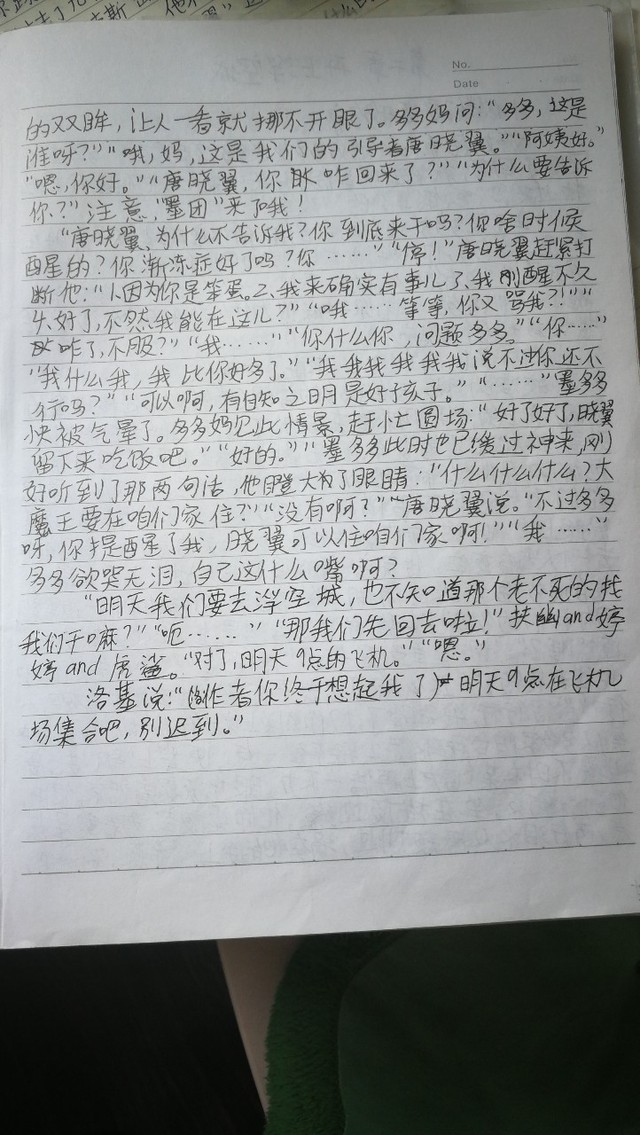 No.
Date
的双眸，让人一看就挪不开眼了。多多妈问：“多多，这是
谁呀？”“哦，妈，这是我们的引导者唐晓翼。”“阿姨好。”
“嗯，你好。”“唐晓翼，你咋回来了？”“为什么要告诉
你？”注意，“墨团”来了哦！
“唐晓翼、为什么不告诉我？你到底来干吗？你啥时候
醒星的？你渐冻症好了吗？你……”“停！”唐晓翼赶紧打
断他：“1.因为你是笨蛋。2、我来确实有事儿了、我刚醒不久
4、好了，不然我能在这儿？”“哦……等等，你又骂我？！”“
咋了，不服？”“我……”“你什么你，问题多多。”“你……”
“我什么我，我比你好多了。”“我我我我我我说不过你还不
行吗？”“可以啊，有自知之明是好孩子。”“……”墨多多
快被气晕了。多多妈见此情景，赶忙圆场：“好了好了，晓翼
留下来吃饭吧。”“好的。”“墨多多此时也已缓过神来，刚
好听到了那两句话，他瞪大了眼睛：“什么什么什么？大
魔王要在咱们家住？”“没有啊？”唐晓翼说。“不过多多
呀，你提醒了我，晓翼可以住咱们家啊！”“我……”
多多欲哭无泪，自己这什么嘴啊？
“明天我们要去浮空城，也不知道那个老不死的找
我们干嘛？”“呃……”“那我们先回去啦！”扶幽and婷
婷and虎鲨。“对了，明天9点的飞机。”“嗯。”
洛基说：“（作者你终于想起我了）明天9点在飞机
场集合吧，别迟到。”